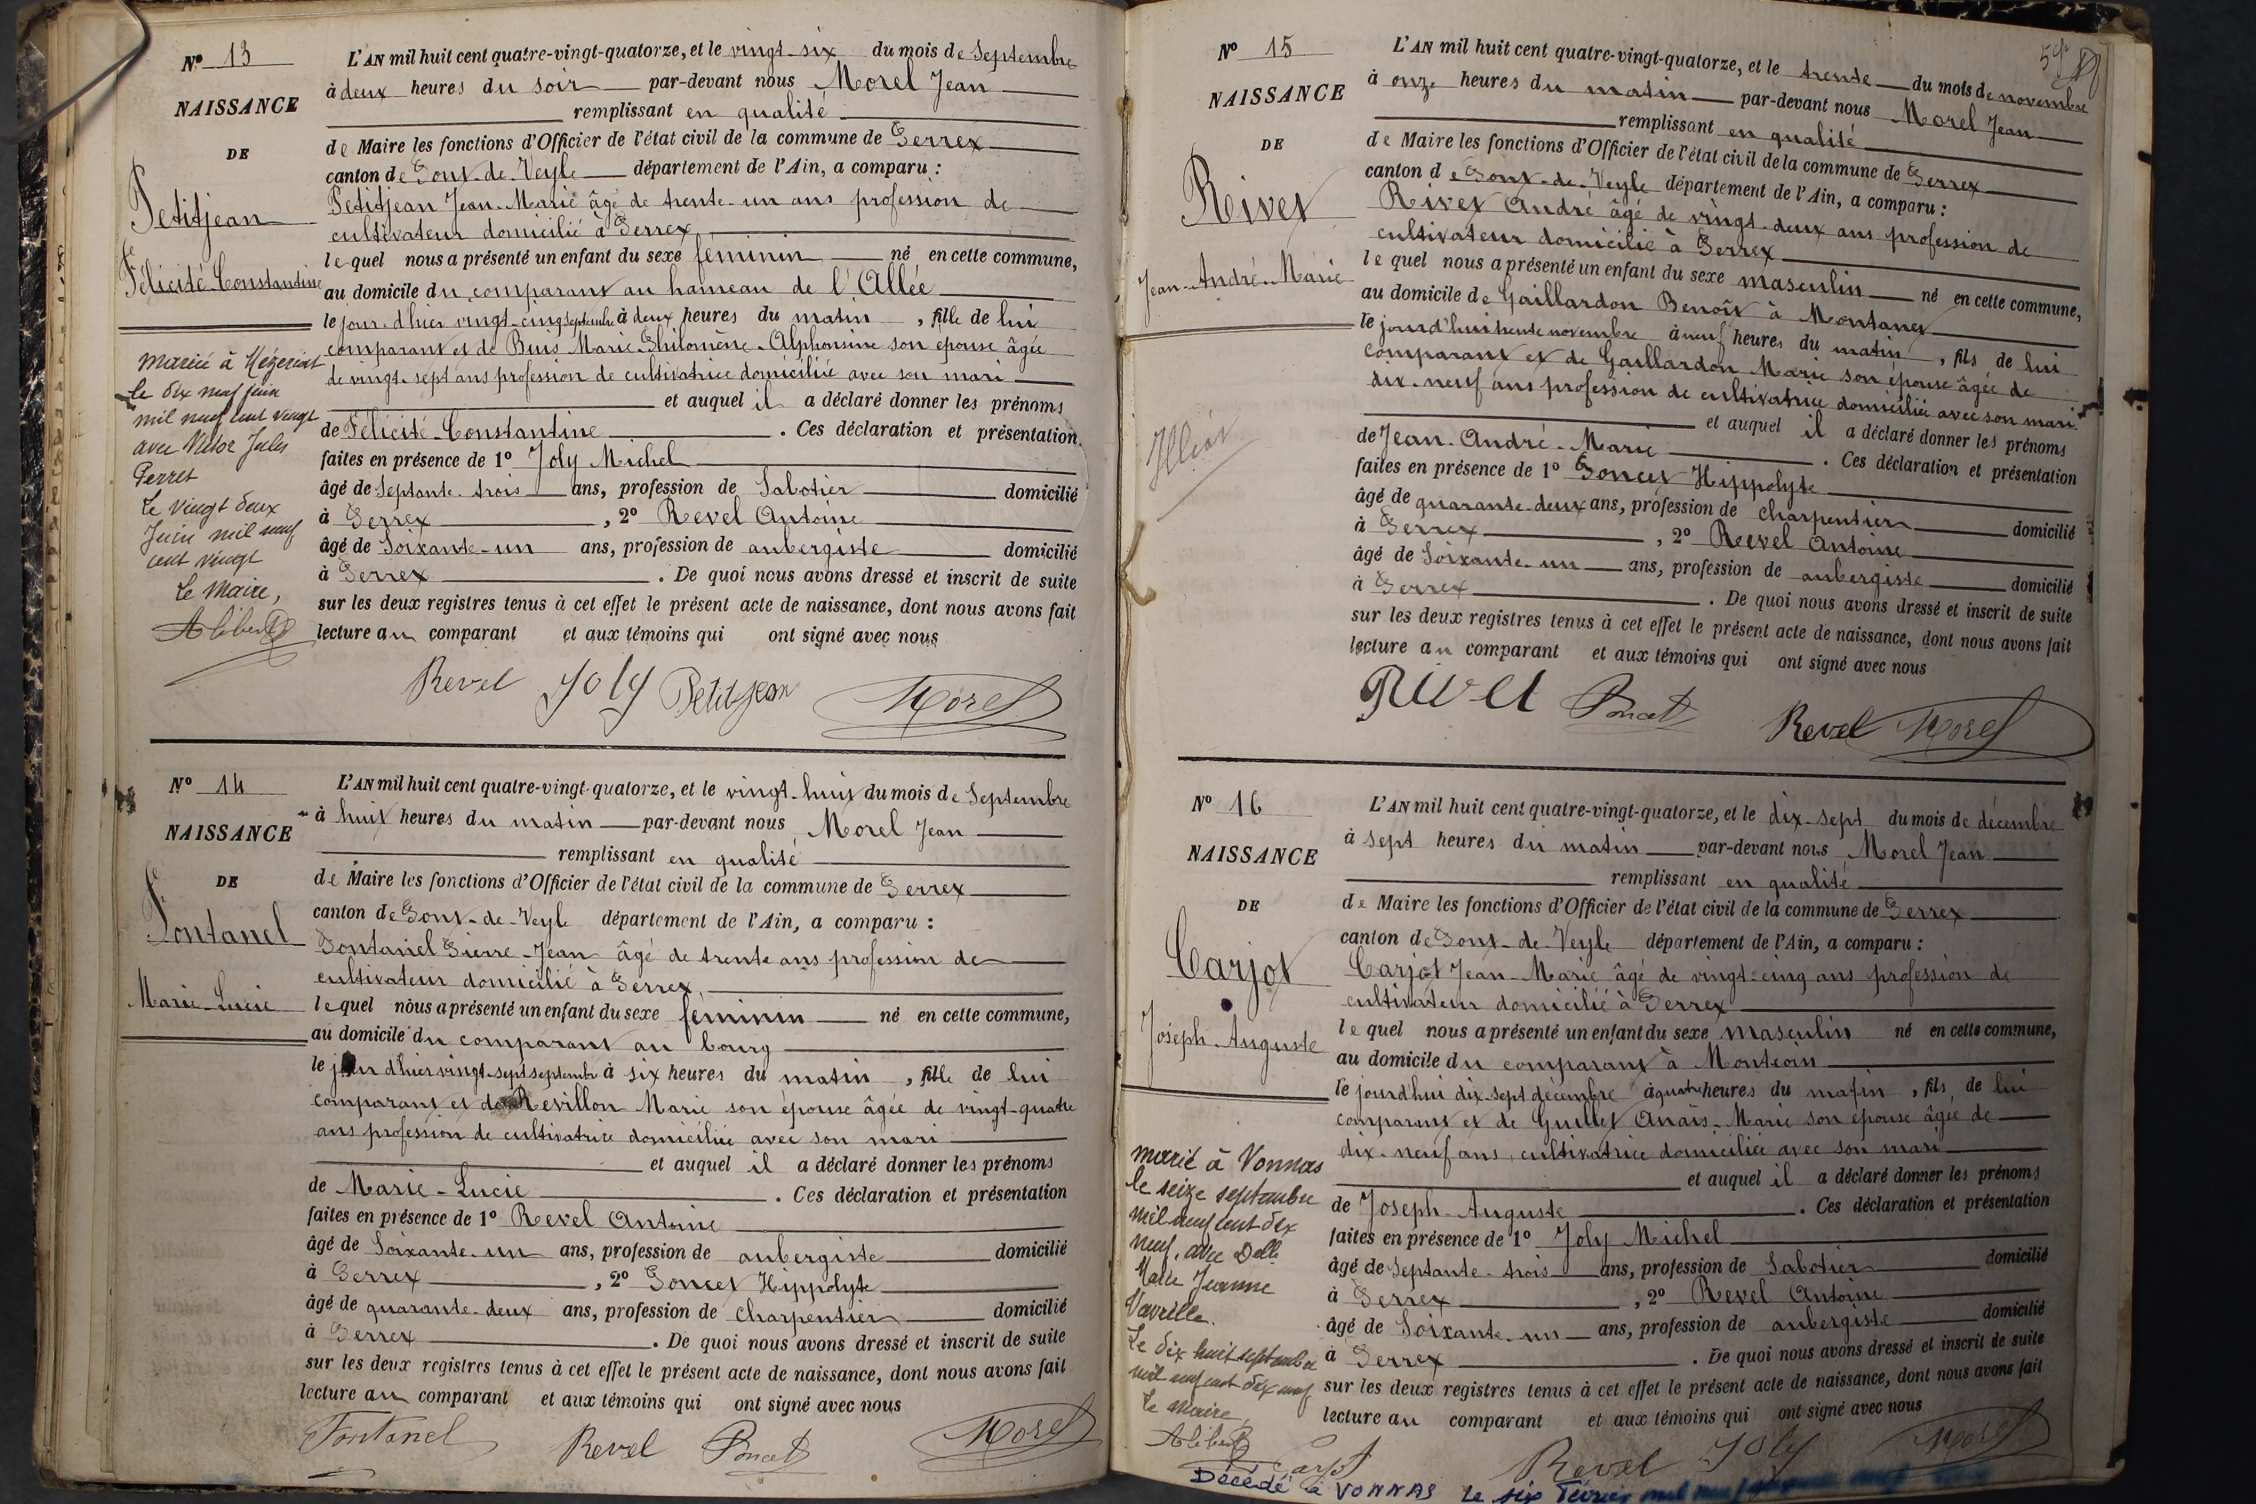 N° 13
NAISSANCE
DE
Petitjean
Félicité-Constantine
mariée à Mézériat
le dix neuf juin
mil neuf cent vingt
avec Victor Jules
Perret
Le vingt deux
Juin mil neuf
cent vingt
Le Maire,
L'AN mil huit cent quatre-vingt-quatorze, et le vingt-six du mois de Septembre
à deux heures du soir par-devant nous Morel Jean
remplissant en qualité
de Maire les fonctions d'Officier de l'état civil de la commune de Perrex
canton de Pont-de-Veyle département de l'Ain, a comparu :
Petitjean Jean-Marie âgé de trente-un ans profession de
cultivateur domicilié à Perrex
lequel nous a présenté un enfant du sexe féminin né en cette commune,
au domicile du comparant au hameau de l'Allée
le jour d'hier vingt-cinq septembre à deux heures du matin, fille de lui
comparant et de Buis Marie-Philomène-Alphonsine son épouse âgée
de vingt-sept ans profession de cultivatrice domiciliée avec son mari
et auquel il a déclaré donner les prénoms
de Félicité-Constantine. Ces déclaration et présentation
faites en présence de 1° Joly Michel
âgé de Septante-trois ans, profession de Sabotier domicilié
à Perrex, 2° Revel Antoine
âgé de Soixante-un ans, profession de aubergiste domicilié
à Perrex. De quoi nous avons dressé et inscrit de suite
sur les deux registres tenus à cet effet le présent acte de naissance, dont nous avons fait
lecture au comparant et aux témoins qui ont signé avec nous
Revel Joly Petitjean Morel
N° 14
NAISSANCE
DE
Fontanel
Marie-Lucie
L'AN mil huit cent quatre-vingt-quatorze, et le vingt-huit du mois de Septembre
à huit heures du matin par-devant nous Morel Jean
remplissant en qualité
de Maire les fonctions d'Officier de l'état civil de la commune de Perrex
canton de Pont-de-Veyle département de l'Ain, a comparu :
Fontanel Pierre-Jean âgé de trente ans profession de
cultivateur domicilié à Perrex,
lequel nous a présenté un enfant du sexe féminin né en cette commune,
au domicile du comparant au bourg
le jour d'hier vingt-sept septembre à six heures du matin, fille de lui
comparant et de Revillon Marie son épouse âgée de vingt-quatre
ans profession de cultivatrice domiciliée avec son mari
et auquel il a déclaré donner les prénoms
de Marie-Lucie. Ces déclaration et présentation
faites en présence de 1° Revel Antoine
âgé de Soixante-un ans, profession de aubergiste domicilié
à Perrex, 2° Poncet Hippolyte
âgé de quarante-deux ans, profession de charpentier domicilié
à Perrex. De quoi nous avons dressé et inscrit de suite
sur les deux registres tenus à cet effet le présent acte de naissance, dont nous avons fait
lecture au comparant et aux témoins qui ont signé avec nous
Fontanel Revel Poncet Morel
N° 15
NAISSANCE
DE
Rivet
Jean-André-Marie
L'AN mil huit cent quatre-vingt-quatorze, et le trente du mois de novembre
à onze heures du matin par-devant nous Morel Jean
remplissant en qualité
de Maire les fonctions d'Officier de l'état civil de la commune de Perrex
canton de Pont-de-Veyle département de l'Ain, a comparu :
Rivet André âgé de vingt-deux ans profession de
cultivateur domicilié à Perrex
lequel nous a présenté un enfant du sexe masculin né en cette commune,
au domicile de Gaillardon Benoît à Montanet
le jourd'hui trente novembre à neuf heures du matin, fils de lui
comparant et de Gaillardon Marie son épouse âgée de
dix-neuf ans profession de cultivatrice domiciliée avec son mari
et auquel il a déclaré donner les prénoms
de Jean-André-Marie. Ces déclaration et présentation
faites en présence de 1° Poncet Hippolyte
âgé de quarante-deux ans, profession de charpentier domicilié
à Perrex, 2° Revel Antoine
âgé de Soixante-un ans, profession de aubergiste domicilié
à Perrex. De quoi nous avons dressé et inscrit de suite
sur les deux registres tenus à cet effet le présent acte de naissance, dont nous avons fait
lecture au comparant et aux témoins qui ont signé avec nous
Rivet Poncet Revel Morel
N° 16
NAISSANCE
DE
Carjot
Joseph-Auguste
marié à Vonnas
le seize septembre
mil neuf cent dix
neuf, avec Delle
Marie Jeanne
Vavrille.
Le dix huit septembre
mil neuf cent dix neuf
Le Maire,
L'AN mil huit cent quatre-vingt-quatorze, et le dix-sept du mois de décembre
à sept heures du matin par-devant nous Morel Jean
remplissant en qualité
de Maire les fonctions d'Officier de l'état civil de la commune de Perrex
canton de Pont-de-Veyle département de l'Ain, a comparu :
Carjot Jean-Marie âgé de vingt-cinq ans profession de
cultivateur domicilié à Perrex
lequel nous a présenté un enfant du sexe masculin né en cette commune,
au domicile du comparant à Montcoin
le jourd'hui dix-sept décembre à quatre heures du matin, fils de lui
comparant et de Guillet Anaïs-Marie son épouse âgée de
dix-neuf ans, cultivatrice domiciliée avec son mari
et auquel il a déclaré donner les prénoms
de Joseph-Auguste. Ces déclaration et présentation
faites en présence de 1° Joly Michel
âgé de Septante-trois ans, profession de Sabotier domicilié
à Perrex, 2° Revel Antoine
âgé de Soixante-un ans, profession de aubergiste domicilié
à Perrex. De quoi nous avons dressé et inscrit de suite
sur les deux registres tenus à cet effet le présent acte de naissance, dont nous avons fait
lecture au comparant et aux témoins qui ont signé avec nous
Carjot Revel Joly Morel
Décédé à VONNAS Le six Février mil neuf